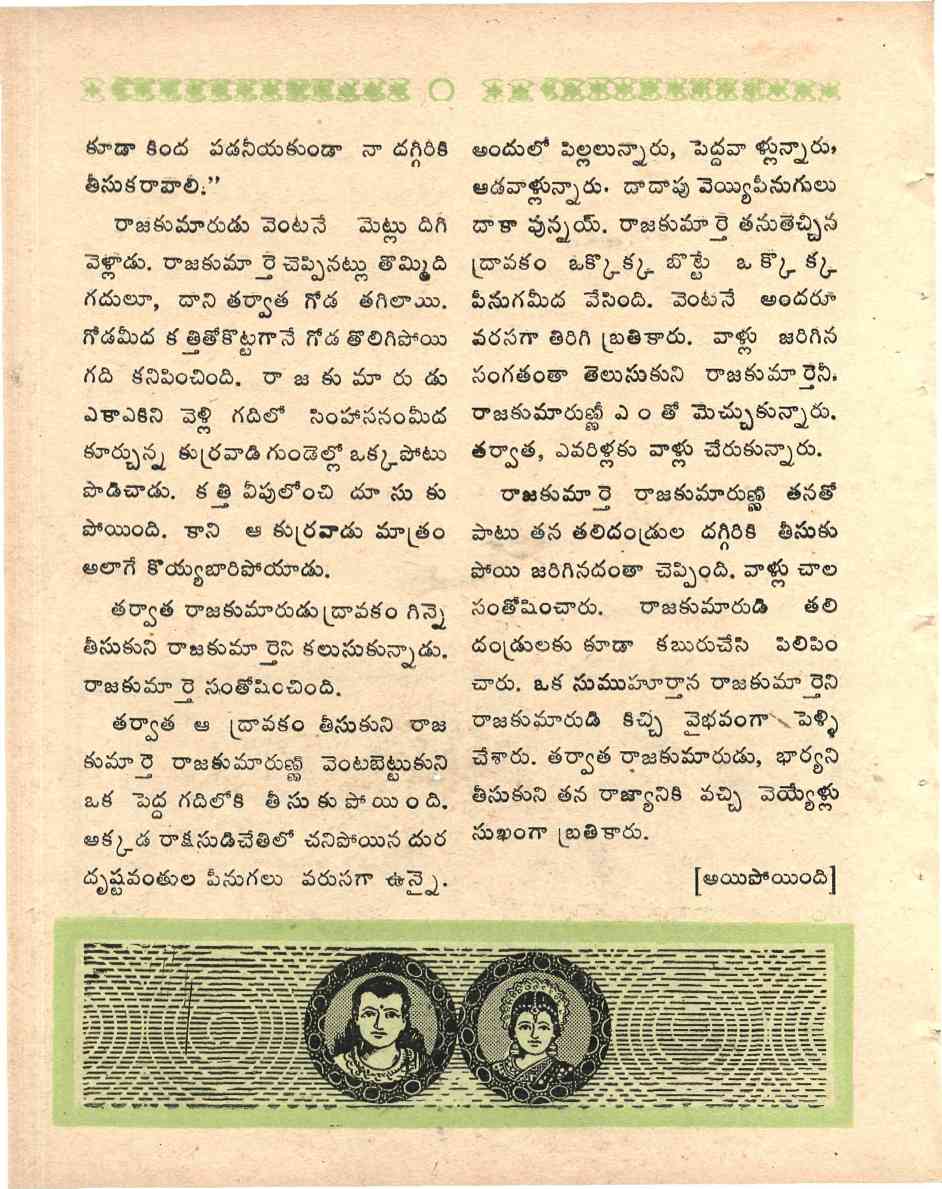 కూడా కింద పడనీయకుండా నా దగ్గిరికి
తీసుకరావాలి."
రాజకుమారుడు వెంటనే మెట్లు దిగి
వెళ్లాడు. రాజకుమార్తె చెప్పినట్లు తొమ్మిది
గదులూ, దాని తర్వాత గోడ తగిలాయి.
గోడమీద కత్తితోకొట్టగానే గోడ తొలిగిపోయి
గది కనిపించింది. రాజకుమారుడు
ఎకాఎకిని వెళ్లి గదిలో సింహాసనంమీద
కూర్చున్న కుర్రవాడి గుండెల్లో ఒక్కపోటు
పొడిచాడు. కత్తి వీపులోంచి దూసుకు
పోయింది. కాని ఆ కుర్రవాడు మాత్రం
అలాగే కొయ్యబారిపోయాడు.
తర్వాత రాజకుమారుడు ద్రావకం గిన్నె
తీసుకుని రాజకుమార్తెని కలుసుకున్నాడు.
రాజకుమార్తె సంతోషించింది.
తర్వాత ఆ ద్రావకం తీసుకుని రాజ
కుమార్తె రాజకుమారుణ్ణి వెంటబెట్టుకుని
ఒక పెద్ద గదిలోకి తీసుకుపోయింది.
అక్కడ రాక్షసుడిచేతిలో చనిపోయిన దుర
దృష్టవంతుల పీనుగలు వరుసగా ఉన్నై.
అందులో పిల్లలున్నారు, పెద్దవాళ్లున్నారు,
ఆడవాళ్లున్నారు. దాదాపు వెయ్యిపీనుగులు
దాకా వున్నయ్. రాజకుమార్తె తనుతెచ్చిన
ద్రావకం ఒక్కొక్క బొట్టే ఒక్కొక్క
పీనుగమీద వేసింది. వెంటనే అందరూ
వరసగా తిరిగి బ్రతికారు. వాళ్లు జరిగిన
సంగతంతా తెలుసుకుని రాజకుమార్తెనీ,
రాజకుమారుణ్ణీ ఎంతో మెచ్చుకున్నారు.
తర్వాత, ఎవరిళ్లకు వాళ్లు చేరుకున్నారు.
రాజకుమార్తె రాజకుమారుణ్ణి తనతో
పాటు తన తలిదండ్రుల దగ్గిరికి తీసుకు
పోయి జరిగినదంతా చెప్పింది. వాళ్లు చాల
సంతోషించారు. రాజకుమారుడి తలి
దండ్రులకు కూడా కబురుచేసి పిలిపిం
చారు. ఒక సుముహూర్తాన రాజకుమార్తెని
రాజకుమారుడి కిచ్చి వైభవంగా పెళ్ళి
చేశారు. తర్వాత రాజకుమారుడు, భార్యని
తీసుకుని తన రాజ్యానికి వచ్చి వెయ్యేళ్లు
సుఖంగా బ్రతికారు.
[అయిపోయింది]